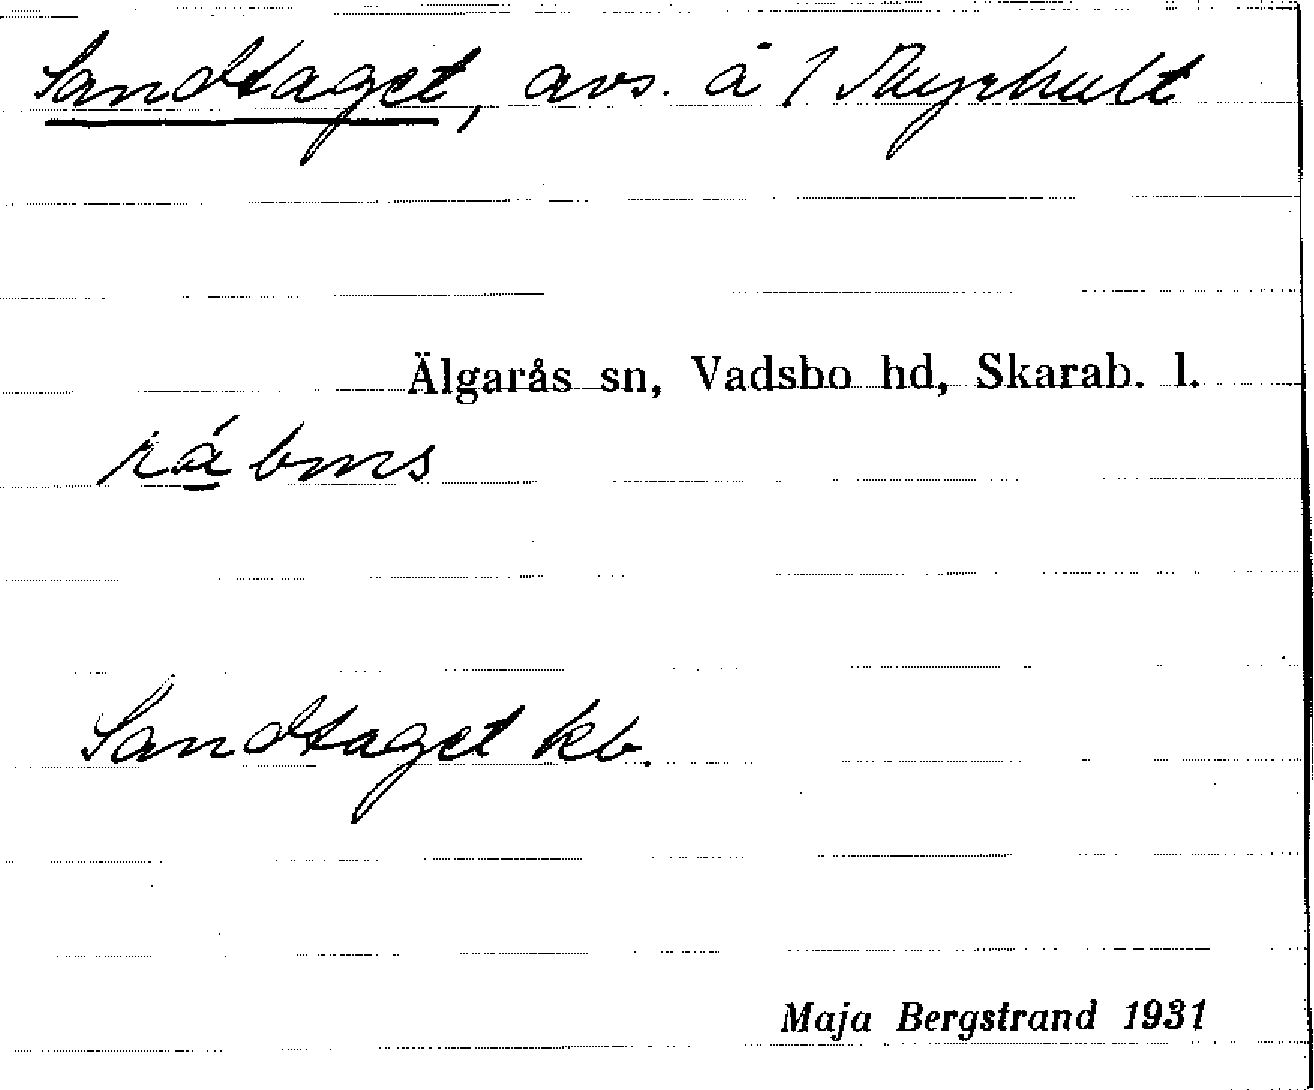 Sandtaget, avs. å 1 Myrhult
Älgarås sn, Vadsbo hd, Skarab. l.
Sandtaget kb.
Maja Bergstrand 1931